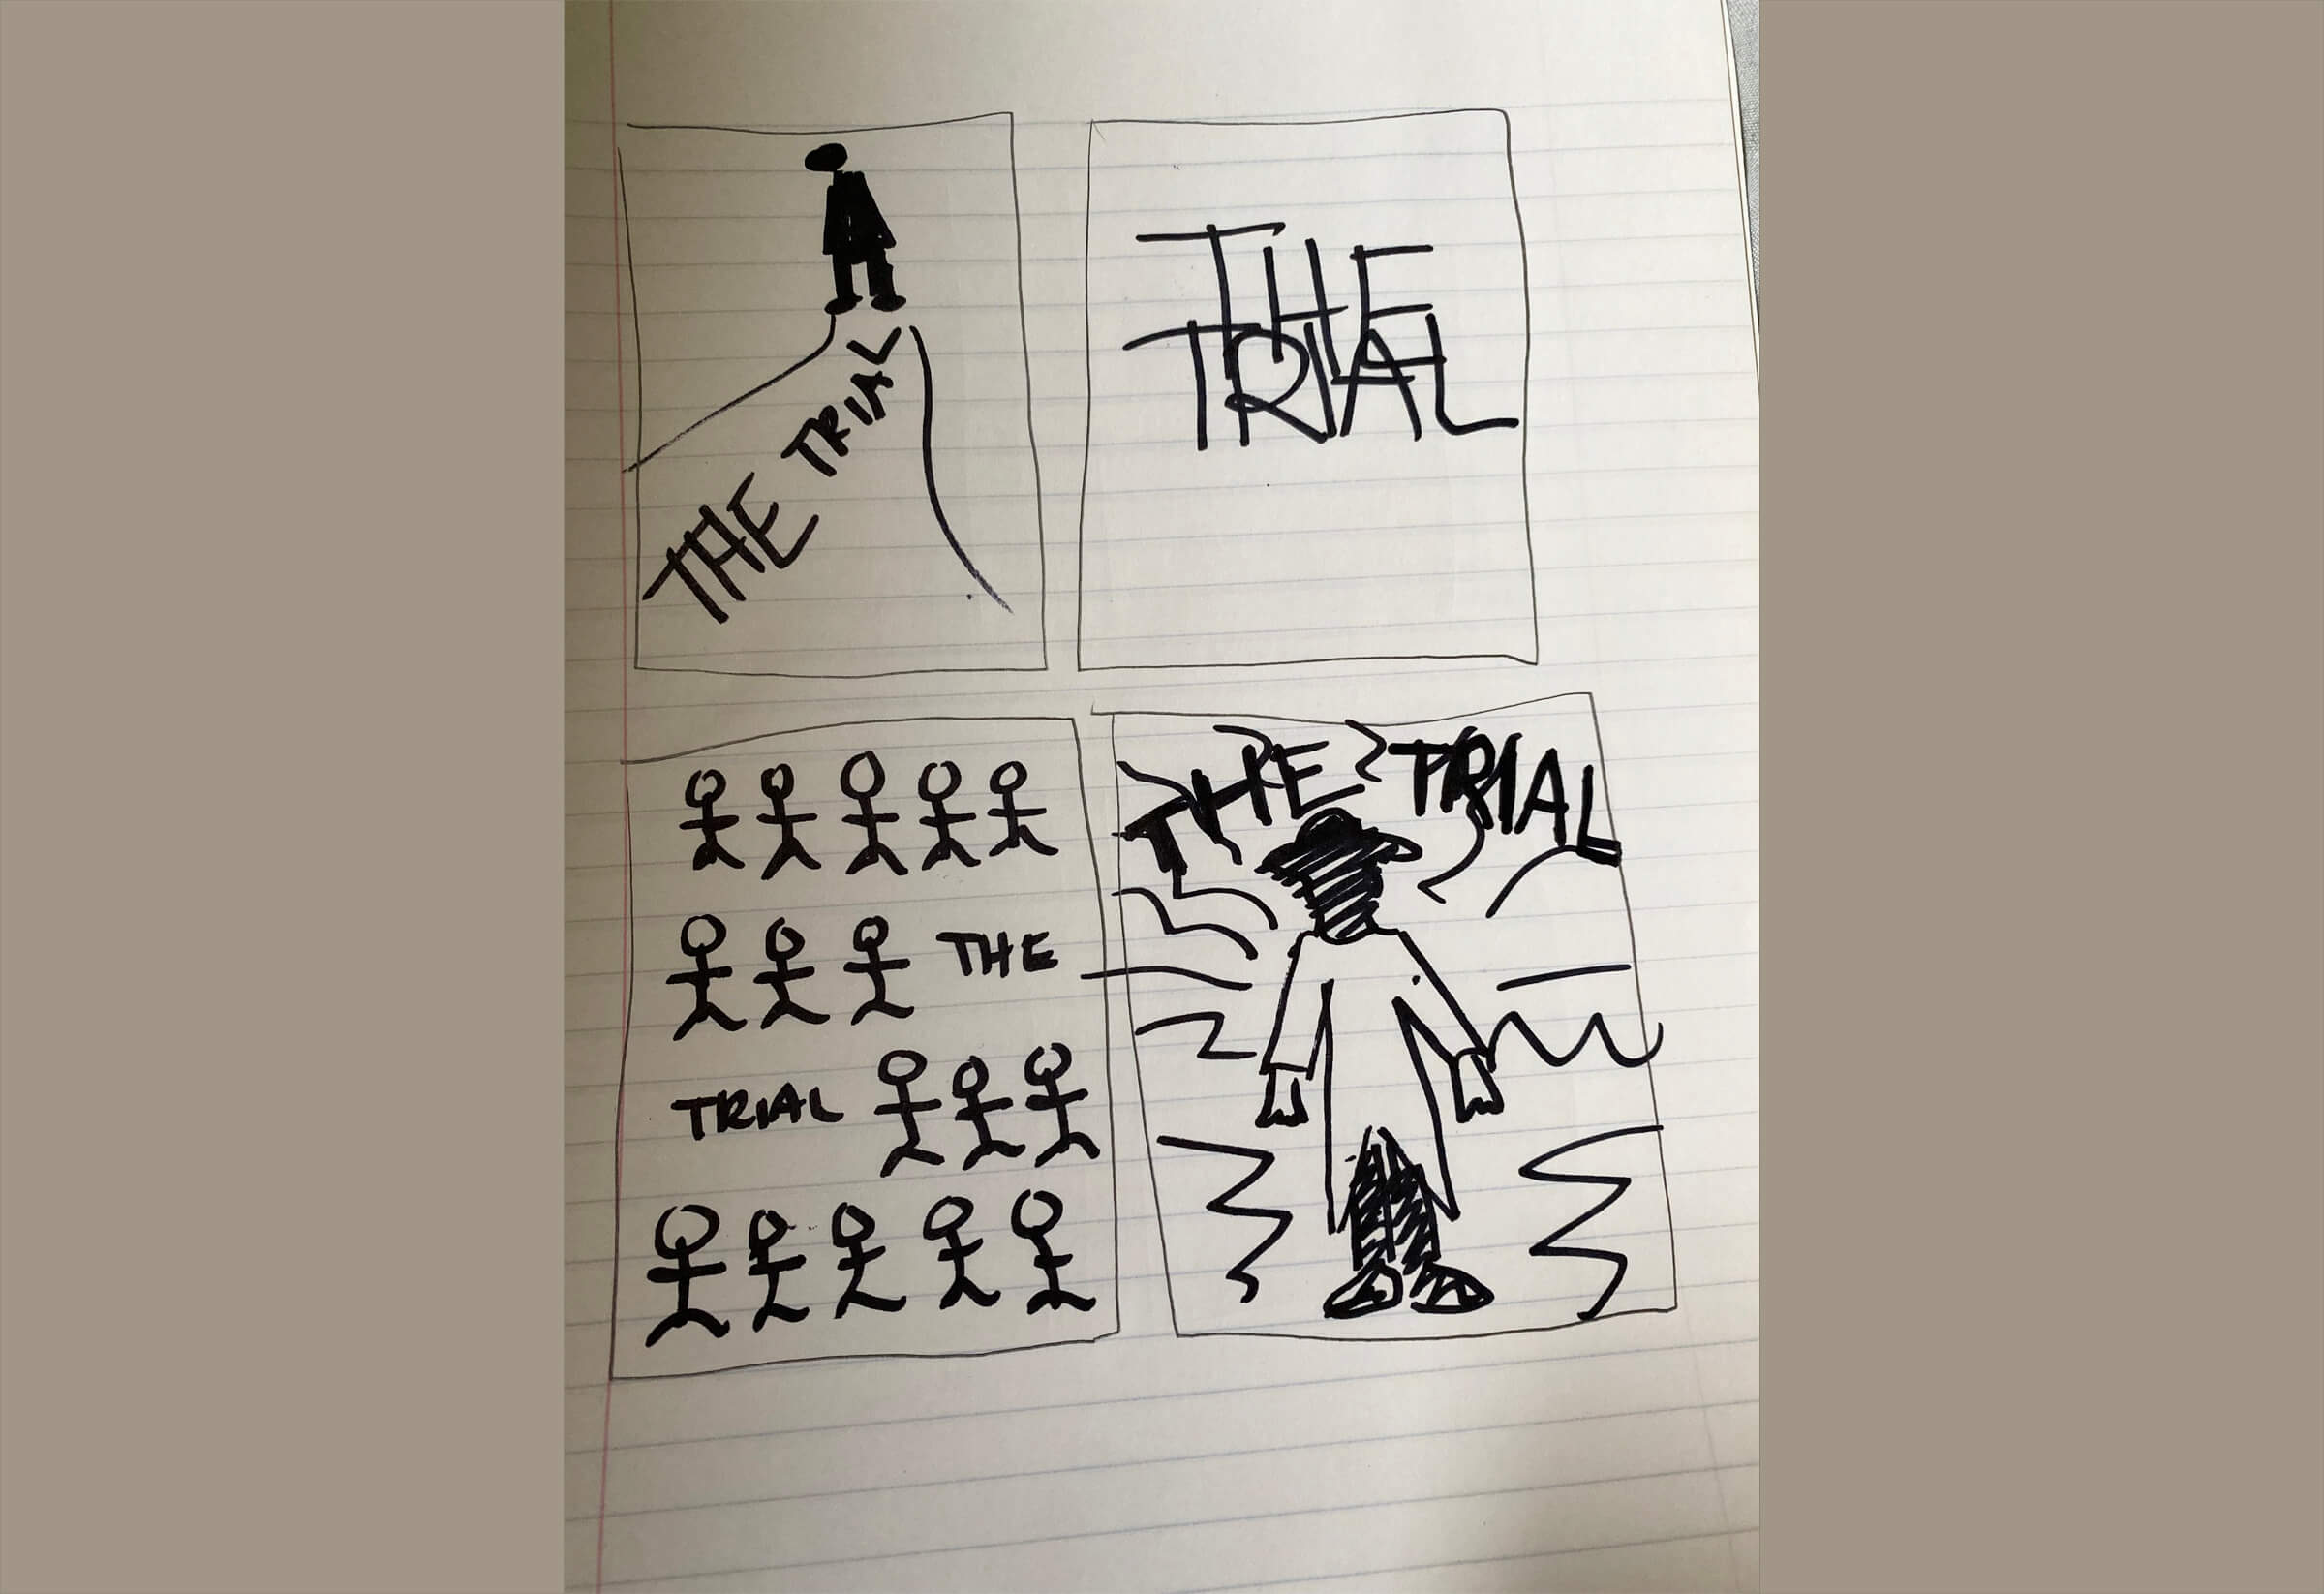 THE TRIAL
THE
TRIAL
THE
TRIAL
THE TRIAL